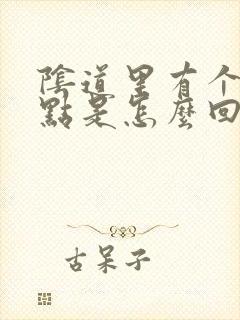 陰道里有个
點是怎麼回
古呆子